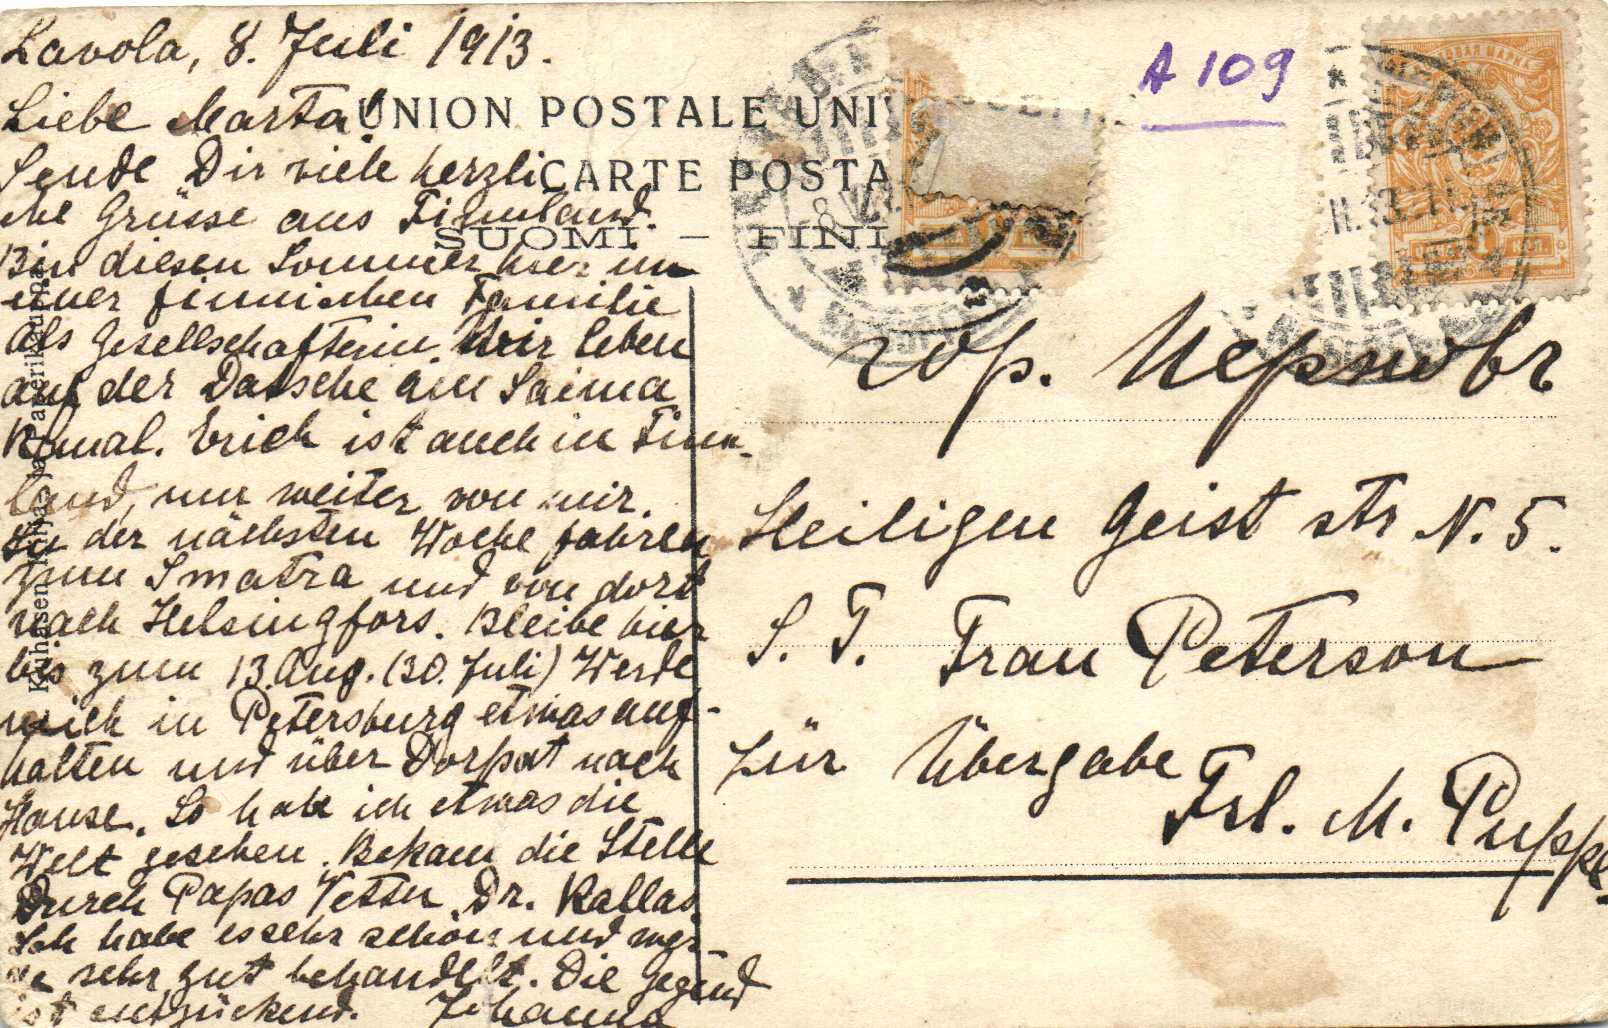 Lavola, 8. Juli 1913.
Liebe Marta!
Sende Dir viele herzli
che Grüsse aus Finnland.
Bin diesen Sommer hier in
einer finnischen Familie
als Gesellschafterin. Wir leben
auf der Datsche am Saima
Kanal. Erich ist auch in Finn-
land, nur weiter von mir.
In der nächsten Woche fahren
zum Imatra und von dort
nach Helsingfors. Bleibe hier
bis zum 13. Aug. (30. Juli) Werde
mich in Petersburg etwas auf-
halten und über Dorpat nach
Hause. So habe ich etwas die
Welt gesehen. Bekam die Stelle
durch Papas Vetter Dr. Kallas.
Ich habe es sehr schön und wer-
de sehr gut behandelt. Die Gegend
ist entzückend. Johanna
UNION POSTALE UNI
CARTE POSTA
SUOMI – FINL
A 109
гор. Перновъ
Heiligen Geist str N. 5.
S. T. Frau Peterson
für Übergabe
Frl. M. Pupp